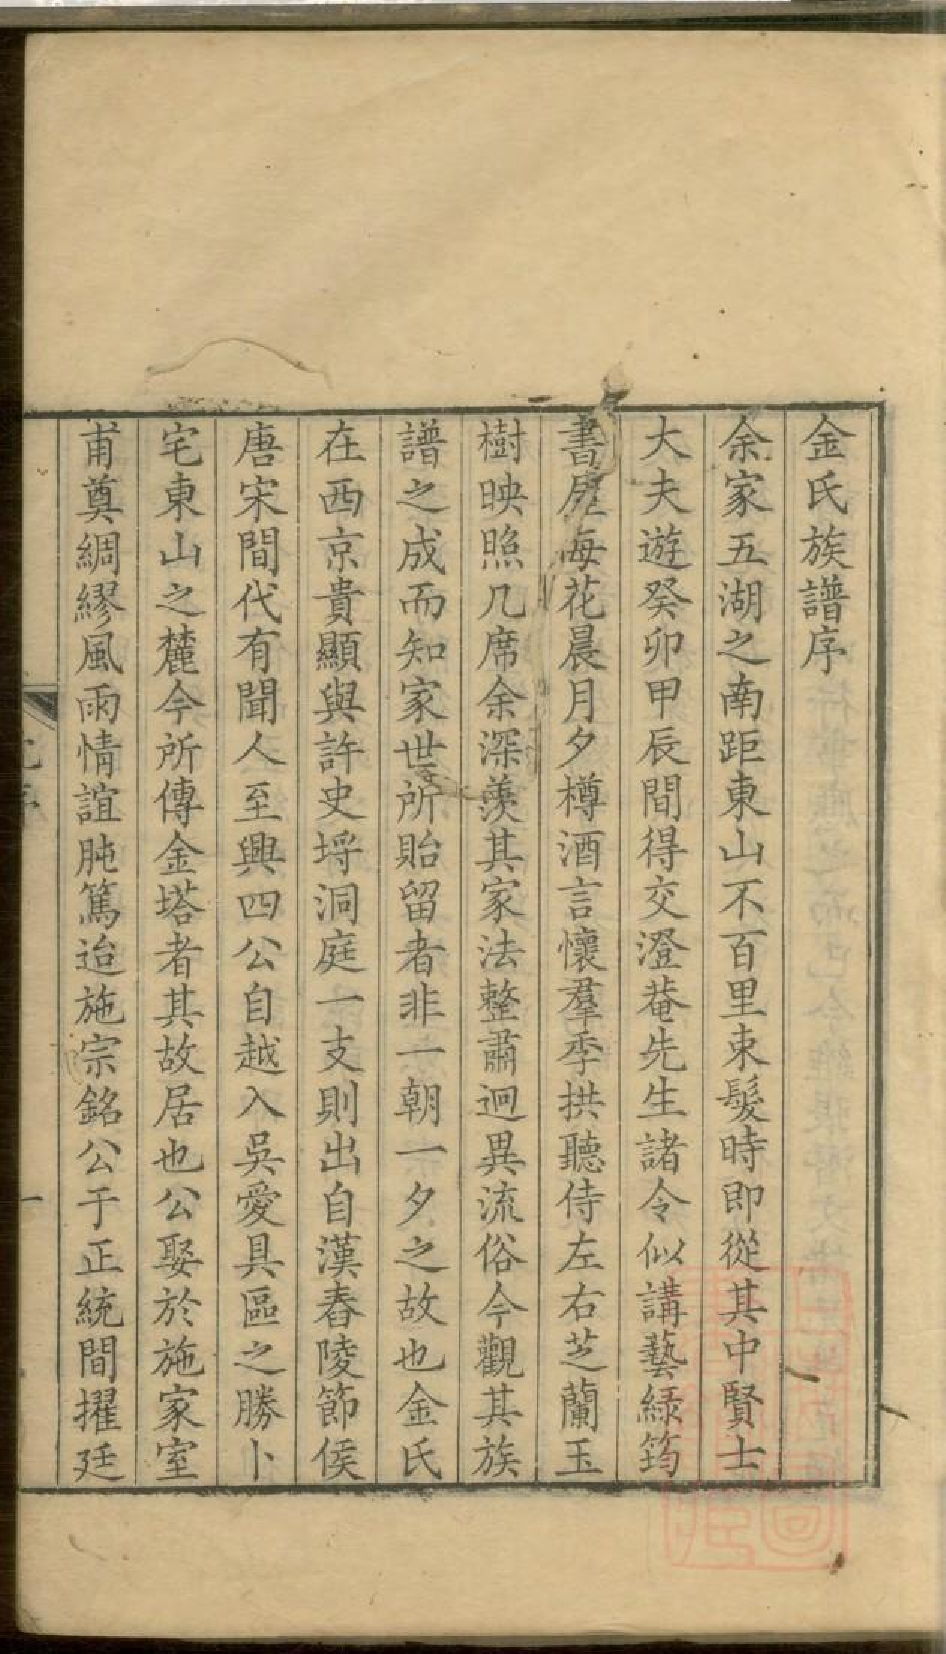 金氏族譜序
余家五湖之南距東山不百里束髮時即從其中賢士
大夫遊癸卯甲辰間得交澄菴先生諸令似講藝綠筠
書屋每花晨月夕樽酒言懷羣季拱聽侍左右芝蘭玉
樹映照几席余深羨其家法整肅迥異流俗今觀其族
譜之成而知家世所貽留者非一朝一夕之故也金氏
在西京貴顯與許史埒洞庭一支則出自漢舂陵節侯
唐宋間代有聞人至興四公自越入吳愛具區之勝卜
宅東山之麓今所傳金塔者其故居也公娶於施家室
甫奠綢繆風雨情誼肫篤迨施宗銘公于正統間擢廷
一